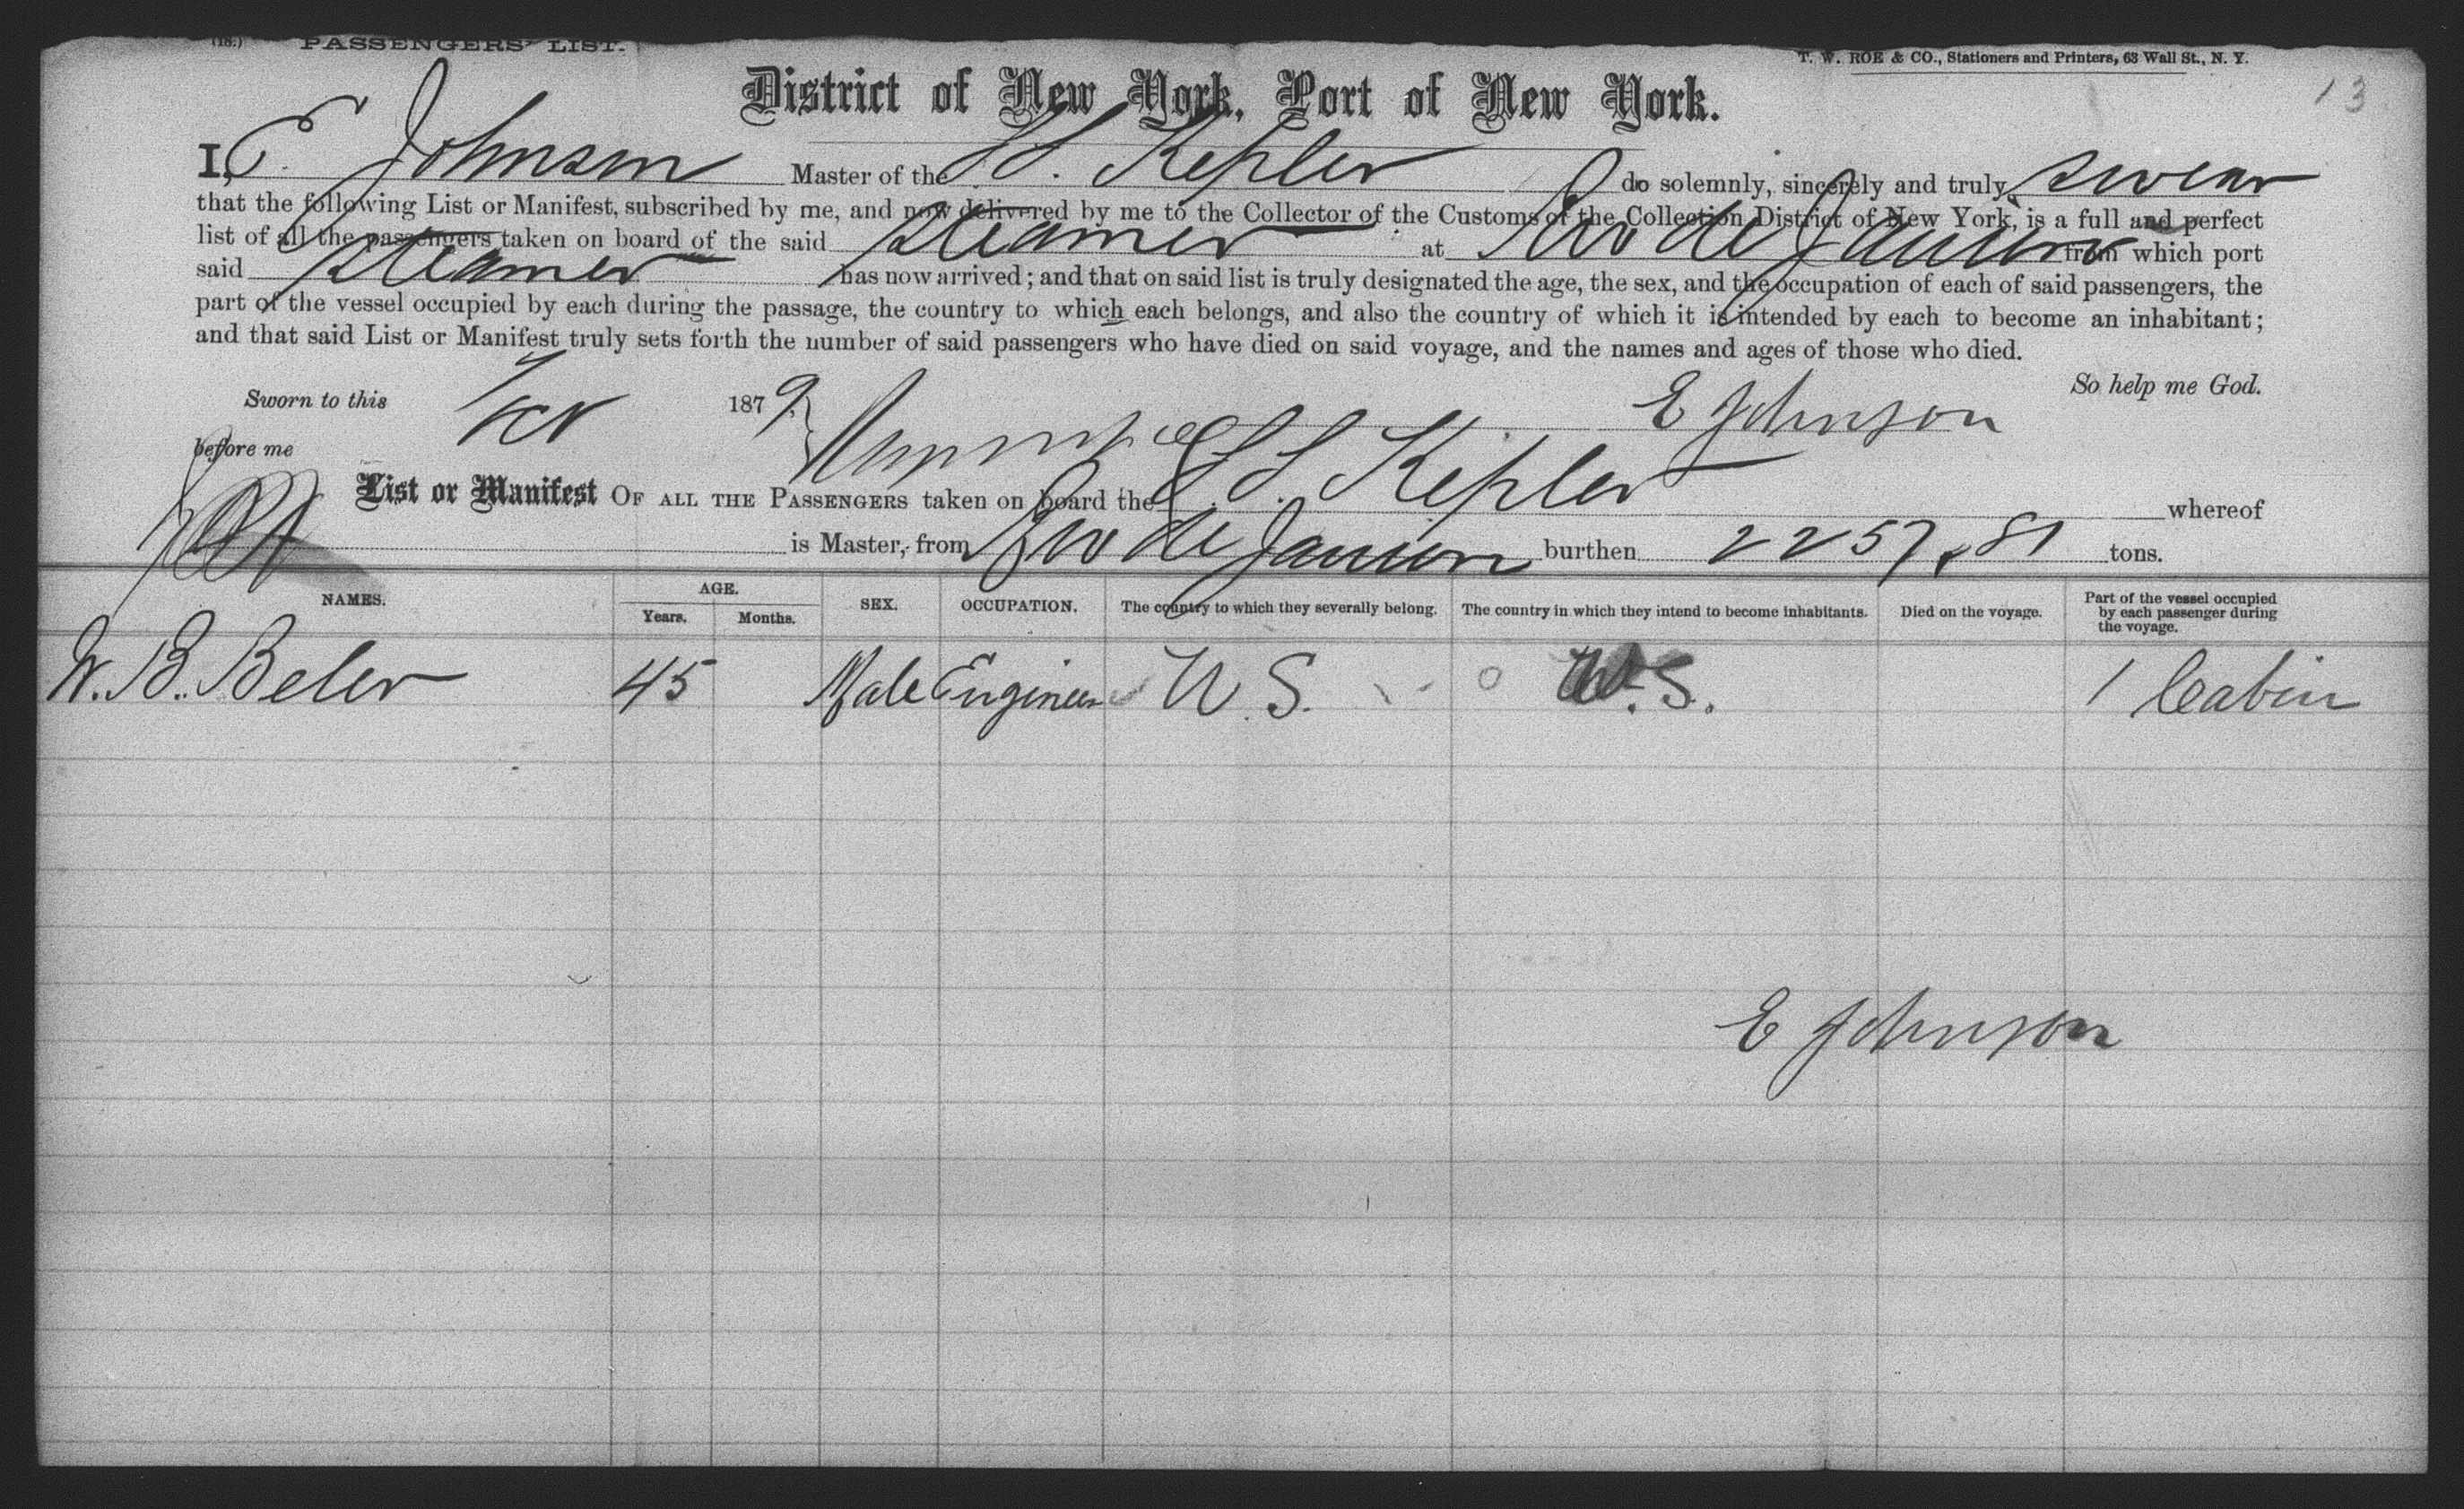 (18.) PASSENGERS' LIST.
T. W. ROE & CO., Stationers and Printers, 63 Wall St., N. Y.
13
District of New York, Port of New York.
I, E. Johnson Master of the S.S. Kepler do solemnly, sincerely and truly swear
that the following List or Manifest, subscribed by me, and now delivered by me to the Collector of the Customs of the Collection District of New York, is a full and perfect
list of all the passengers taken on board of the said Steamer at Rio de Janeiro from which port
said Steamer has now arrived; and that on said list is truly designated the age, the sex, and the occupation of each of said passengers, the
part of the vessel occupied by each during the passage, the country to which each belongs, and also the country of which it is intended by each to become an inhabitant;
and that said List or Manifest truly sets forth the number of said passengers who have died on said voyage, and the names and ages of those who died.
So help me God.
Sworn to this 1879, E Johnson
before me
List or Manifest OF ALL THE PASSENGERS taken on board the S.S. Kepler whereof
is Master, from Rio de Janeiro burthen 2257.81 tons.
NAMES. AGE. Years. Months. SEX. OCCUPATION. The country to which they severally belong. The country in which they intend to become inhabitants. Died on the voyage. Part of the vessel occupied by each passenger during the voyage.
W. B. Beler 45 Male Engineer U.S. U.S. 1 Cabin
E Johnson